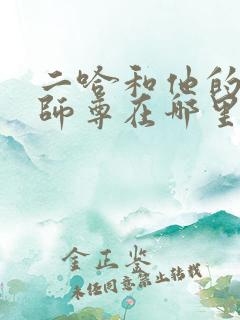 二哈和他的
師尊在哪里
金正鉴
未经同意禁止转载